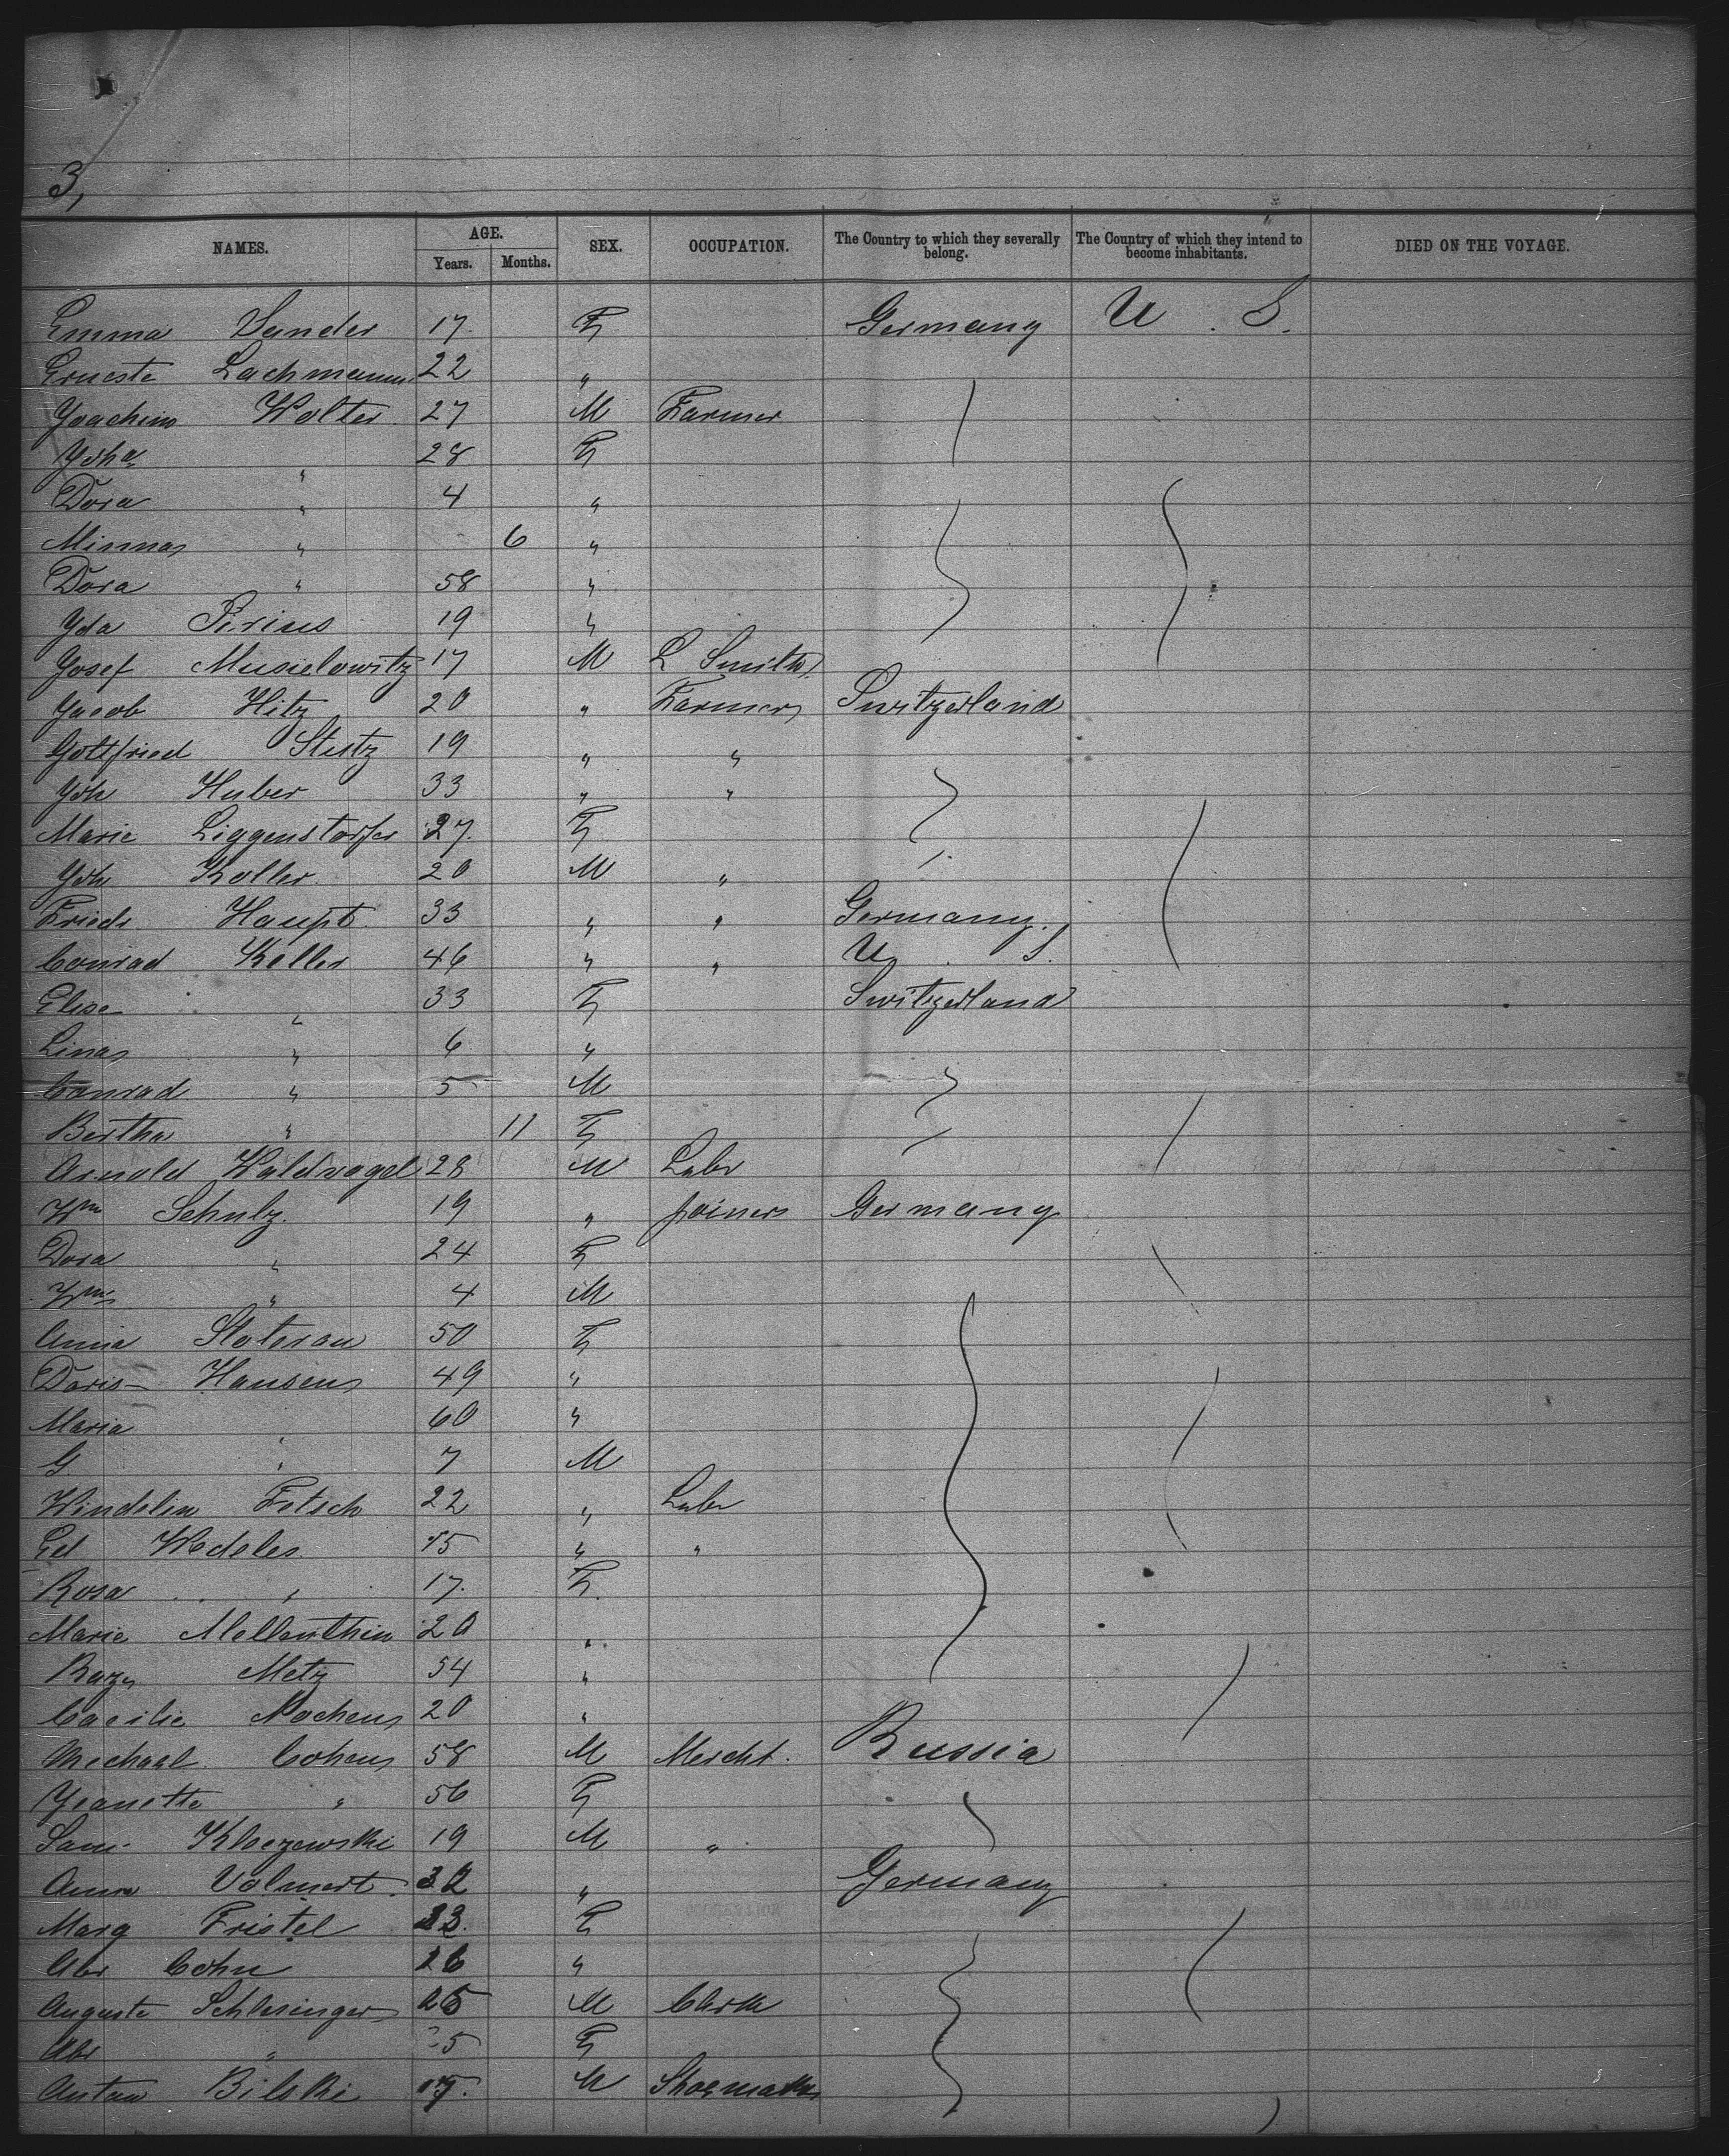 3,
NAMES. AGE. SEX. OCCUPATION. The Country to which they severally belong. The Country of which they intend to become inhabitants. DIED ON THE VOYAGE.
Years. Months.
Emma Sander 17. F Germany U. S.
Erneste Lachmann 22 "
Joachim Wolter 27 M Farmer
Joha " 28 F
Dora " 4 "
Minna " 6 "
Dora " 58 "
Ida Pirius 19 "
Josef Musielowitz 17 M L Smith
Jacob Hitz 20 " Farmer Switzerland
Gottfried Stutz 19 " "
Joh Huber 33 " "
Marie Liggenstorfer 27. F
Joh Koller 20 M "
Friedr Haupt 33 " " Germany.
Conrad Keller 46 " " U. S.
Elise " 33 F Switzerland
Lina " 6 "
Conrad " 5 M
Bertha " 11 F
Arnold Waldvogel 28 M Labr
Wm Schulz. 19 " Joiner Germany
Dora " 24 F
Wm " 4 M
Anna Sloterau 50 F
Doris Hansen 49 "
Maria " 60 "
G " 7 M
Windelin Fetsch 22 " Labr
Ed Wedeles 15 " "
Rosa " 17. F.
Marie Mellenthin 20 "
Metz 54 "
Cacilie Nochem 20 "
Michael Cohen 58 M Mercht. Russia
Jeanette " 56 F
Sam. Kloezewski 19 M "
Anna Volmert. 32 " Germany
Marg Fristel 33. F
Abr Cohn 16 "
Auguste Schlesinger 25 M Clerk
Abr " F
Anton Bilski M Shoemaker